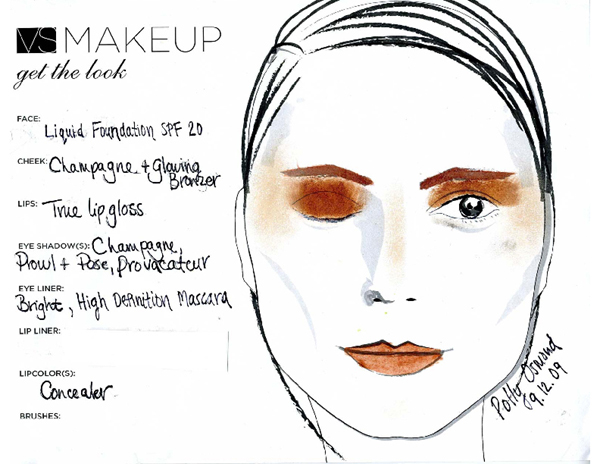 VS MAKEUP
get the look
FACE: Liquid Foundation SPF 20
CHEEK: Champagne + Glowing
Bronzer
LIPS: True lipgloss
EYE SHADOW(S): Champagne,
Prowl + Pose, Provacateur
EYE LINER:
Bright, High Definition Mascara
LIP LINER:
LIPCOLOR(S):
Concealer
BRUSHES:
Polly Osmond
09.12.09